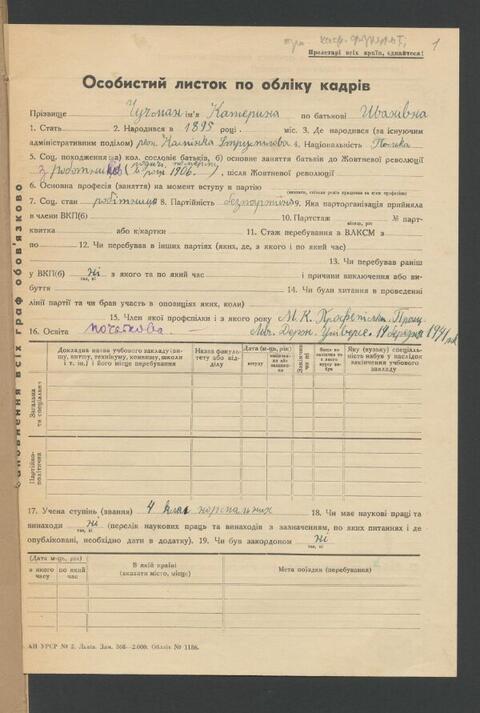 1
Пролетарі всіх країн, єднайтеся!
Особистий листок по обліку кадрів
Прізвище Чучман ім'я Катерина по батькові Іванівна
1. Стать 2. Народився в 1895 році. міс. 3. Де народився (за існуючим
адміністративним поділом) 4. Національність Полька
5. Соц. походження: а) кол. сословіє батьків, б) основне заняття батьків до Жовтневої революції
з робітників (родичі померли
році 1906. , після Жовтневої революції
6. Основна професія (заняття) на момент вступу в партію
7. Соц. стан робітниця 8. Партійність безпартійна 9. Яка парторганізація прийняла
в члени ВКП(б) 10. Партстаж № парт-
квитка або к/картки 11. Стаж перебування в ВЛКСМ з
по 12. Чи перебував в інших партіях (яких, де, з якого і по який час)
13. Чи перебував раніш
у ВКП(б) ні з якого та по який час і причини виключення або ви-
так, ні
буття 14. Чи були хитання в проведенні
лінії партії та чи брав участь в опозиціях яких, коли)
15. Член якої профспілки і з якого року М. К. Профспілки Прац.
16. Освіта початкова. Льв. Держ. Універс. 19 1941
заповнення всіх граф обов'язково
Загальна та спеціальна
Партійно-політична
Докладна назва учбового закладу (вищу, вогтуз, технікум, комвищ, школи і т. ін.) і його місце перебування
Назва факультету або відділу
Дата (м-ць, рік)
вступу
Яку (вузьку) спеціальність набув у наслідок закінчення учбового закладу
17. Учена ступінь (звання) 4 клас нормальних 18. Чи має наукові праці та
винаходи ні (перелік наукових праць та винаходів з зазначенням, по яких питаннях і де
так, ні
опубліковані, необхідно дати в додатку). 19. Чи був закордоном ні
так, ні
(Дата м-ць, рік)
з якого часу
по який час
В якій країні
(вказати місто, місце)
Мета поїздки (перебування)
АН УРСР № 2. Львів. Зам. 368—2.000. Обліт № 1186.